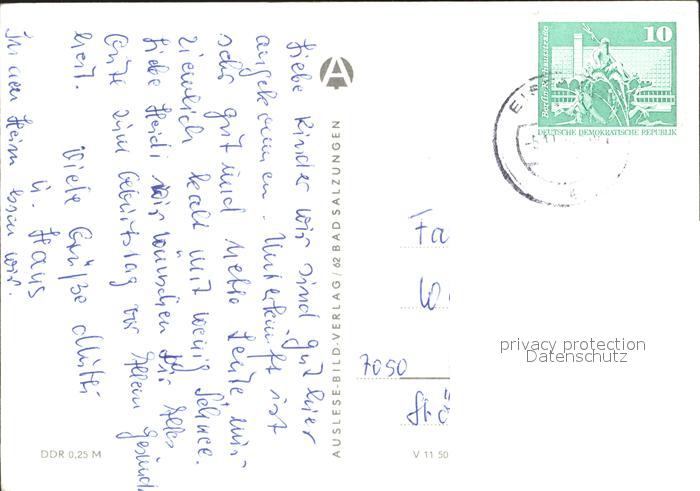 Liebe Kinder wir sind gut hier
angekommen. Unterkunft ist
sehr gut und nette Leute, nur
ziemlich kalt mit wenig Schnee.
Liebe Heidi wir wünschen Dir Alles
Gute zum Geburtstag vor Allem Gesund
heit.
Viele Grüße Mutti
u. Hans
In den Heim wir.
AUSLESE-BILD-VERLAG / 62 BAD SALZUNGEN
DDR 0,25 M
V 11 50
Berlin, Rathausstraße
10
DEUTSCHE DEMOKRATISCHE REPUBLIK
Fa
7050
privacy protection
Datenschutz